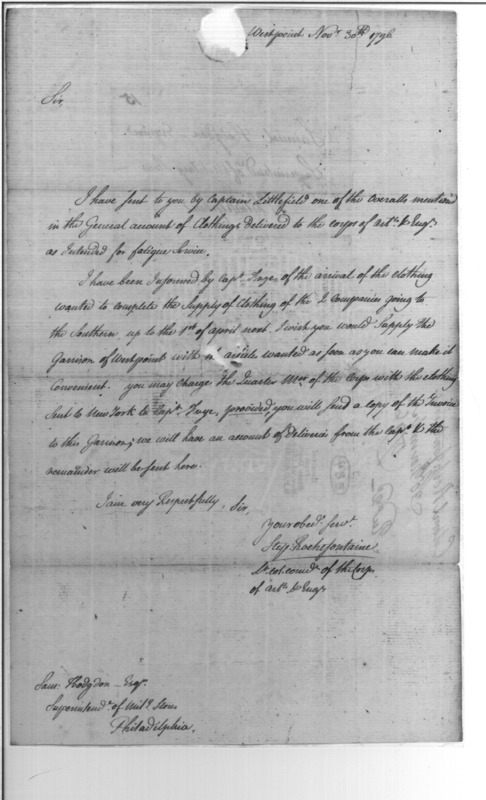 Westpoint Novr 30th 1796
Sir,
I have sent to you by Captain Littlefield one of the Overalls mention'd
in the General account of Clothings delivered to the corps of arts. & Engrs.
as Intended for fatigue Service.
I have been Informed by capt. Frye of the arrival of the clothing
wanted to complete the Supply of Clothing of the 2 companies going to
the Southern up to the 1st of april next. I wish you would Supply the
Garrison of Westpoint with articles wanted as soon as you can make it
convenient. you may charge the Quarter Mer of the Corps with the clothing
sent to New York to Capt. Frye, provided, you will send a copy of the Invoice
to this Garrison; we will have an amount of deliveries from the capt. & the
remainder will be sent here.
I am very Respectfully, Sir,
your obedt. servt.
Stepn Rochefontaine
Lt. col. comdt. of the Corps
of arts. & Engrs
Saml Hodgdon Esqr.
Superintendt. of Mily Stores
Philadelphia.